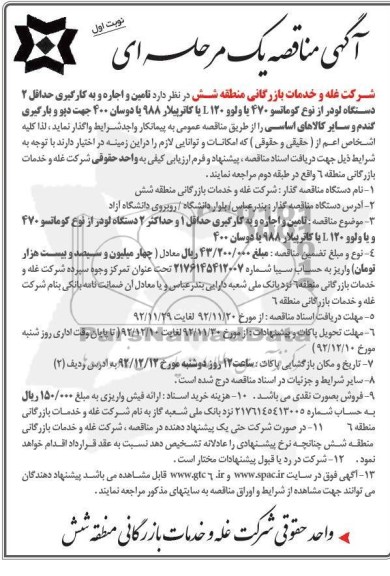 نوبت اول
آگهی مناقصه یک مرحله ای
شرکت غله و خدمات بازرگانی منطقه شش در نظر دارد تامین و اجاره و به کارگیری حداقل ۲
دستگاه لودر از نوع کوماتسو ۴۷۰ یا ولوو L۱۲۰ یا کاترپیلار ۹۸۸ یا دوسان ۴۰۰ جهت دپو و بارگیری
گندم و سایر کالاهای اساسی را از طریق مناقصه عمومی به پیمانکار واجدشرایط واگذار نماید ، لذا کلیه
اشخاص اعم از ( حقیقی و حقوقی ) که امکانات و توانایی لازم را دراین زمینه در اختیار دارند با توجه به
شرایط ذیل جهت دریافت اسناد مناقصه ، پیشنهاد و فرم ارزیابی کیفی به واحد حقوقی شرکت غله و خدمات
بازرگانی منطقه ۶ واقع در طبقه دوم مراجعه نمایند .
۱- نام دستگاه مناقصه گذار : شرکت غله و خدمات بازرگانی منطقه شش
۲- آدرس دستگاه مناقصه گذار : بندرعباس / بلوار دانشگاه / روبروی دانشگاه آزاد
۳- موضوع مناقصه : تامین و اجاره و به کارگیری حداقل ۱ و حداکثر ۲ دستگاه لودر از نوع کوماتسو ۴۷۰
و یا ولوو L۱۲۰ یا کاترپیلار ۹۸۸ یا دوسان ۴۰۰
۴- نوع و مبلغ تضمین مناقصه : مبلغ ۴۳/۲۰۰/۰۰۰ ریال معادل ( چهار میلیون و سیصد و بیست هزار
تومان) واریز به حساب سیبا شماره ۲۱۷۶۱۴۵۴۱۲۰۰۷ تحت عنوان تمرکز وجوه سپرده شرکت غله و
خدمات بازرگانی منطقه۶ نزد بانک ملی شعبه دارایی بندرعباس و یا معادل آن ضمانت نامه بانکی بنام شرکت
غله و خدمات بازرگانی منطقه ۶
۵- مهلت دریافت اسناد : از مورخ ۹۲/۱۱/۲۰ لغایت ۹۲/۱۱/۲۹
۶- مهلت تحویل پاکات و پیشنهادات : از مورخ ۹۲/۱۱/۳۰ لغایت ۹۲/۱۲/۱۰ ( تا پایان وقت اداری روز شنبه
مورخ ۹۲/۱۲/۱۰ )
۷- تاریخ و مکان بازگشایی پاکات : ساعت ۱۲ روز دوشنبه مورخ ۹۲/۱۲/۱۲ به آدرس ردیف (۲)
۸- سایر شرایط و جزئیات در اسناد مناقصه درج شده است .
۹- فروش بصورت نقدی می باشد . ۱۰- هزینه خرید اسناد : ارائه فیش واریزی به مبلغ ۱۵۰/۰۰۰ ریال
به حساب شماره ۲۱۷۶۱۴۵۴۱۳۰۰۵ نزد بانک ملی شعبه گاز به نام شرکت غله و خدمات بازرگانی
منطقه ۶ ۱۱- در صورت شرکت حتی یک پیشنهاد دهنده در مناقصه ، شرکت غله و خدمات بازرگانی
منطقه شش چنانچه نرخ پیشنهادی را عادلانه تشخیص دهد نسبت به عقد قرارداد اقدام خواهد
نمود . ۱۲- شرکت در رد یا قبول پیشنهادات مختار است .
۱۳- آگهی فوق در سایت www.spac.ir و www.gtc۶.ir قابل مشاهده می باشد پیشنهاد دهندگان
می توانند جهت مشاهده از شرایط و اوراق مناقصه به سایتهای مذکور مراجعه نمایند .
واحد حقوقی شرکت غله و خدمات بازرگانی منطقه شش